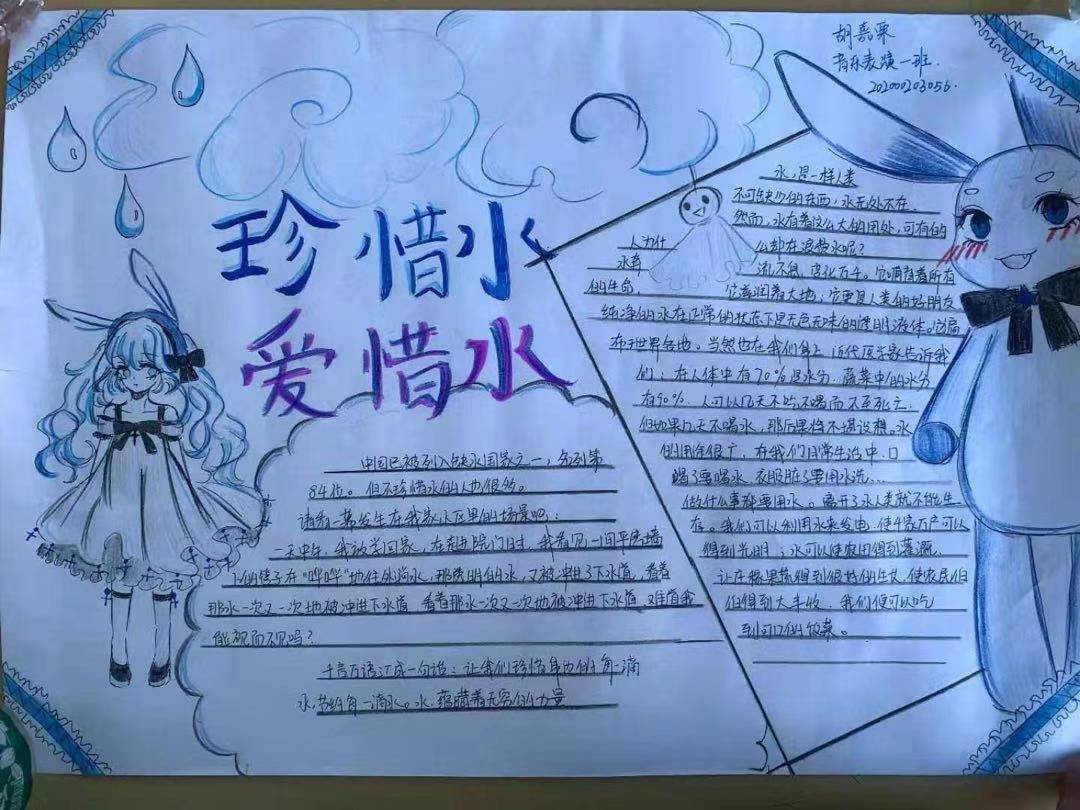 胡嘉栗
音乐表演一班.
20200203056.
珍惜水
爱惜水
水,是一样人类
不可缺少的东西,水无处不在。
然而,水有着这么大的用处,可有的
人为什 么却在浪费水呢?
水奔 流不息,变化万千。它哺育着所有
的生命, 它滋润着大地;它更是人类的好朋友
纯净的水在正常的状态下是无色无味的透明液体。它广
布于世界各地。当然也在我们身上,近代医学家告诉我
们:在人体中有70%是水分,蔬菜中的水分
有90%,人可以几天不吃不喝而不至死亡,
但如果几天不喝水,那后果将不堪设想。水
的用途很广,在我们日常生活中,口
喝了要喝水,衣服脏了要用水洗...
做什么事都要用水。离开了水人类就不能生
存。我们可以利用水来发电,使千家万户可以
得到光明;水可以使农田得到灌溉,
让 得到很好的生长,使农民伯
伯得到大丰收,我们便可以吃
到可口的饭菜。
中国已被列入缺水国家之一,名列第
84位。但不珍惜水的人也很多。
请看一幕发生在我家小区里的场景吧:
一天中午,我放学回家,在 院门时,我看见一间平房墙
下的管子在“哗哗”地往外淌水,那透明的水,又被冲进了下水道,看着
那水一次又一次地被冲进下水道,看着那水一次又一次地被冲进下水道,难道我
能视而不见吗?
千言万语汇成一句话:让我们珍惜身边的每一滴
水,节约每一滴水。水,蕴藏着无穷的力量